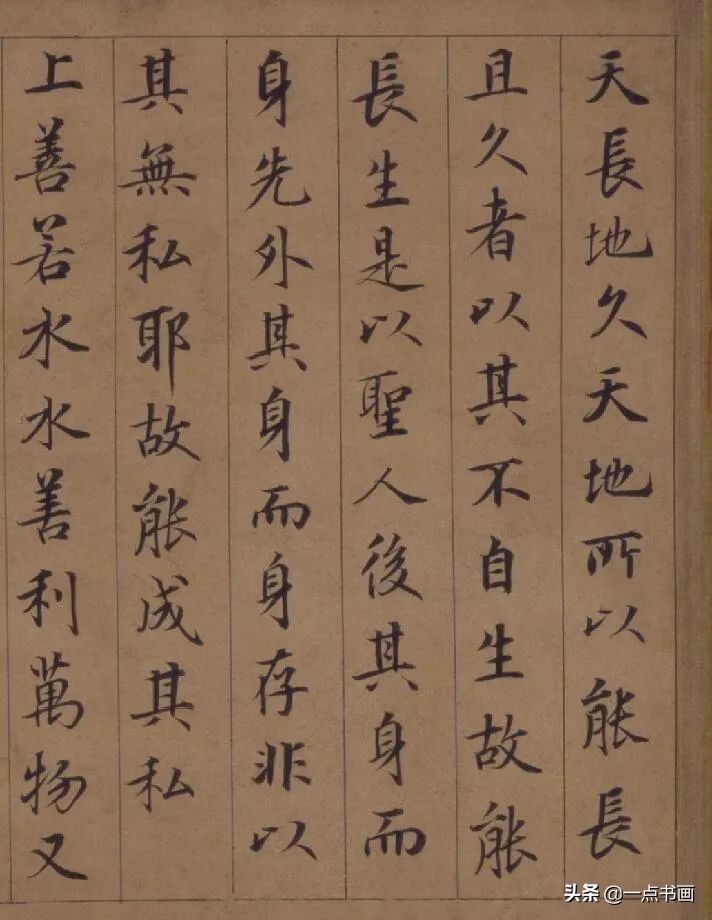 天長地久天地所以能長
且久者以其不自生故能
長生是以聖人後其身而
身先外其身而身存非以
其無私耶故能成其私
上善若水水善利萬物又
头条 @一点书画